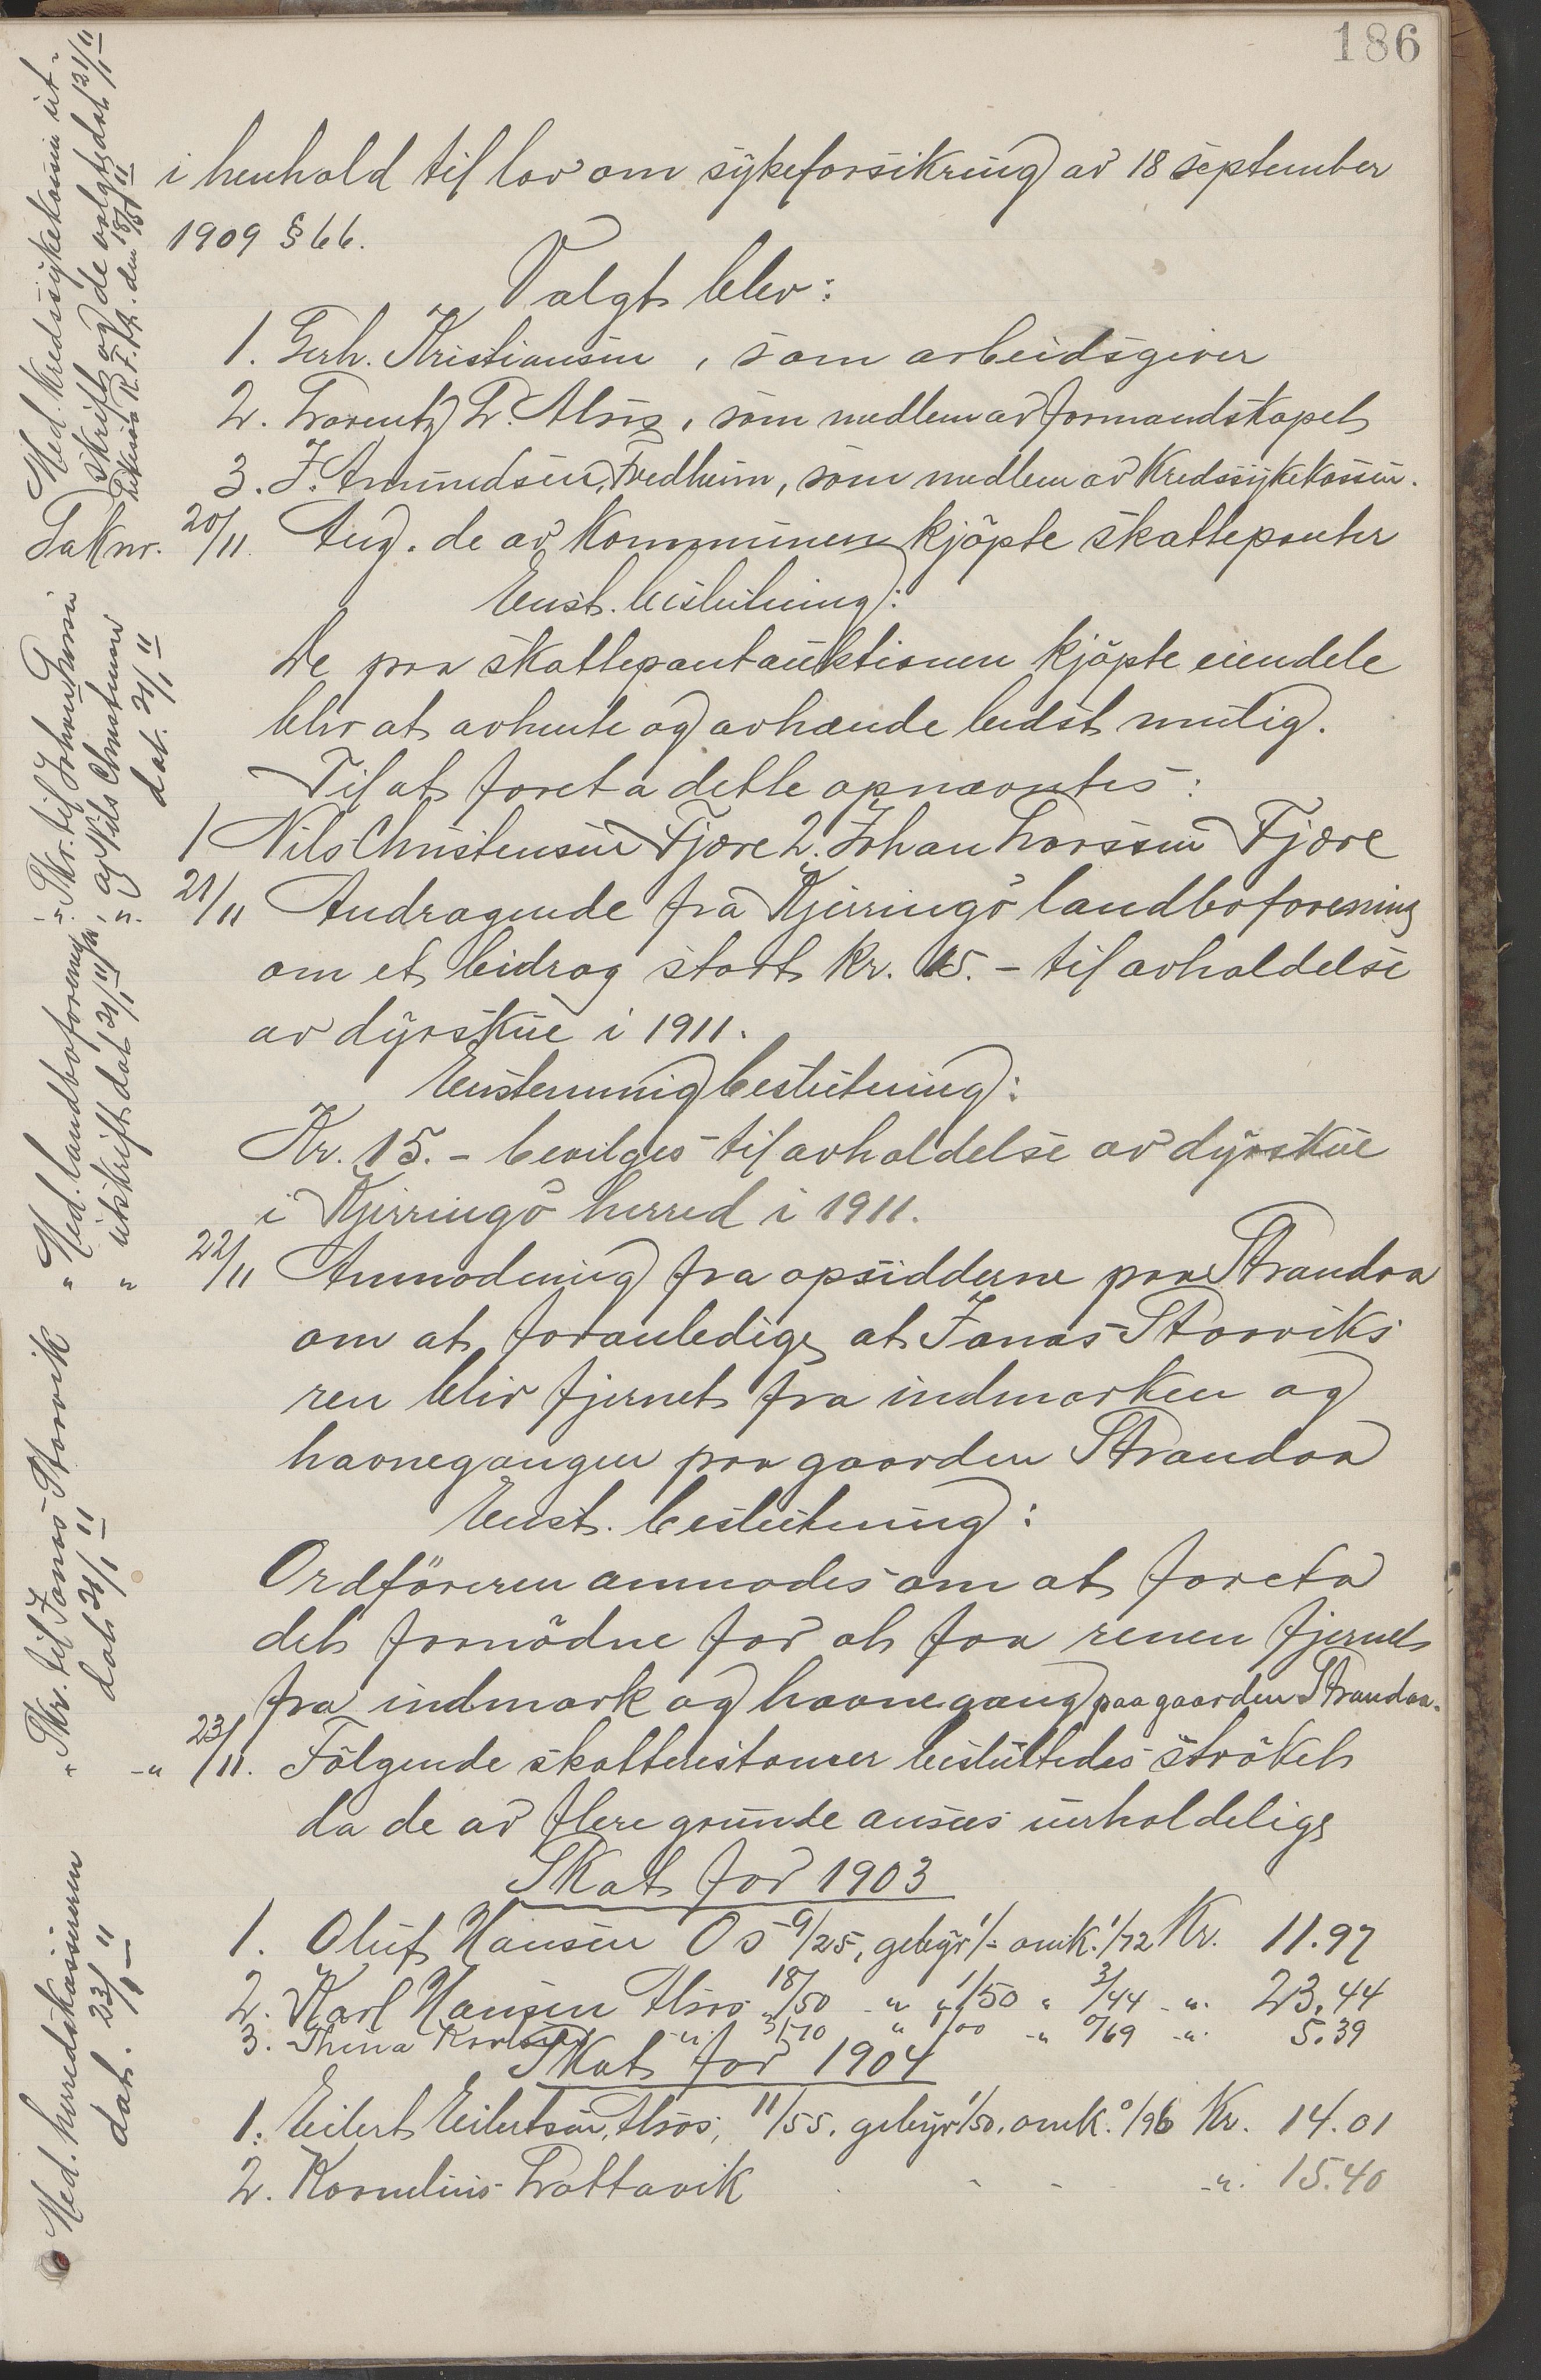 186
i henhold til lov om sykeforsikring av 18 september
1909 § 66.
Valgt blev:
1. Gerh. Kristiansen, som arbeidsgiver
2. Lorentz L. Alsos, som medlem av formandskapet
3. J. Amundsen, Fredheim, som medlem av Kredssykekassen.
Sak nr. 20/11 Ang. de av Kommunen kjöpte skattepanter
Enst. beslutning:
De paa skattepantauktionen kjöpte eiendele
blir at avhente og avhænde bedst mulig.
Til at foreta dette opnævntes:
1 Nils Christensen Fjære 2. Johan Larssen Fjære
21/11 Andragende fra Kjerringö landboforening
om et bidrag stort kr. 15.- til avholdelse
av dyrskue i 1911.
Enstemmig beslutning:
Kr. 15.- bevilges til avholdelse av dyrskue
i Kjerringö herred i 1911.
22/11 Anmodning fra opsidderne paa Strandaa
om at foranledige at Jonas Storviks
ren blir fjernet fra indmarken og
havnegangen paa gaarden Strandaa
Enst. beslutning:
Ordföreren anmodes om at foreta
det fornödne for at faa renen fjernet
fra indmark og havnegang paa gaarden Strandaa.
-"- 23/11. Fölgende skatterestancer besluttedes ströket
da de av flere grunde ansees uerholdelige
Skat for 1903
1. Oluf Hansen Os 9/25, gebyr 1/- omk. 1/72 Kr. 11.97
2. Karl Hansen Alsos 18/50 -"- " 1/50 " 3/44 -"- 23.44
3. Thina Karlsen -"- 3/70 " 1/00 -"- 0/69 -"- 5.39
Skat for 1904
1. Eilert Eilertsen, Alsos, 11/55. gebyr 1/50. omk. 0/96 Kr. 14.01
2. Kornelius Lattavik - - -"- 15.40
Med. Kredssykekassen ut-
skrift og de valgte dat 21/1 11
R. F. A. den 18/1 11
" Skr. til Johan Larssen
og Nils Christensen
dat. 21/1 11
" Med. landboforening
" utskrift dat 21/1 11
" Skr. til Jonas Storvik
dat 21/1 11
Med. herredskassereren
dat. 23/1 11